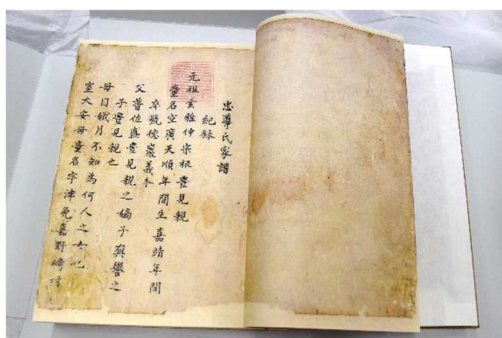 忠導氏家譜
紀錄
元祖玄雅仲宗根豊見親
童名空廣天順年間生嘉靖年間
卒號
父普佐盛豊見親之嫡子真譽之
子豊見親也
母目娥月不知為何人之女也
室大安母童名宇津免嘉野崎村